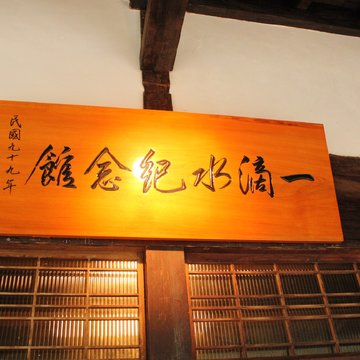 一滴水紀念館
民國九十九年